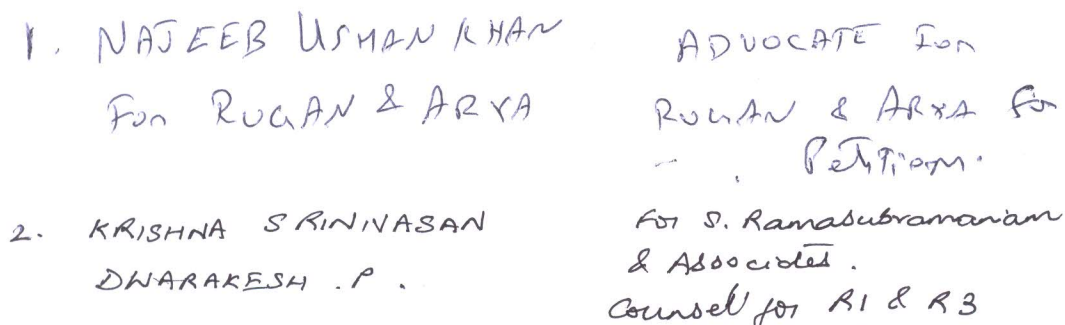 1. NAJEEB USMAN KHAN
For RUGAN & ARYA
ADVOCATE For
RUGAN & ARYA for
Petitioner.
2. KRISHNA SRINIVASAN
DWARAKESH . P .
For S. Ramasubramaniam
& Associates.
Counsel for R1 & R3